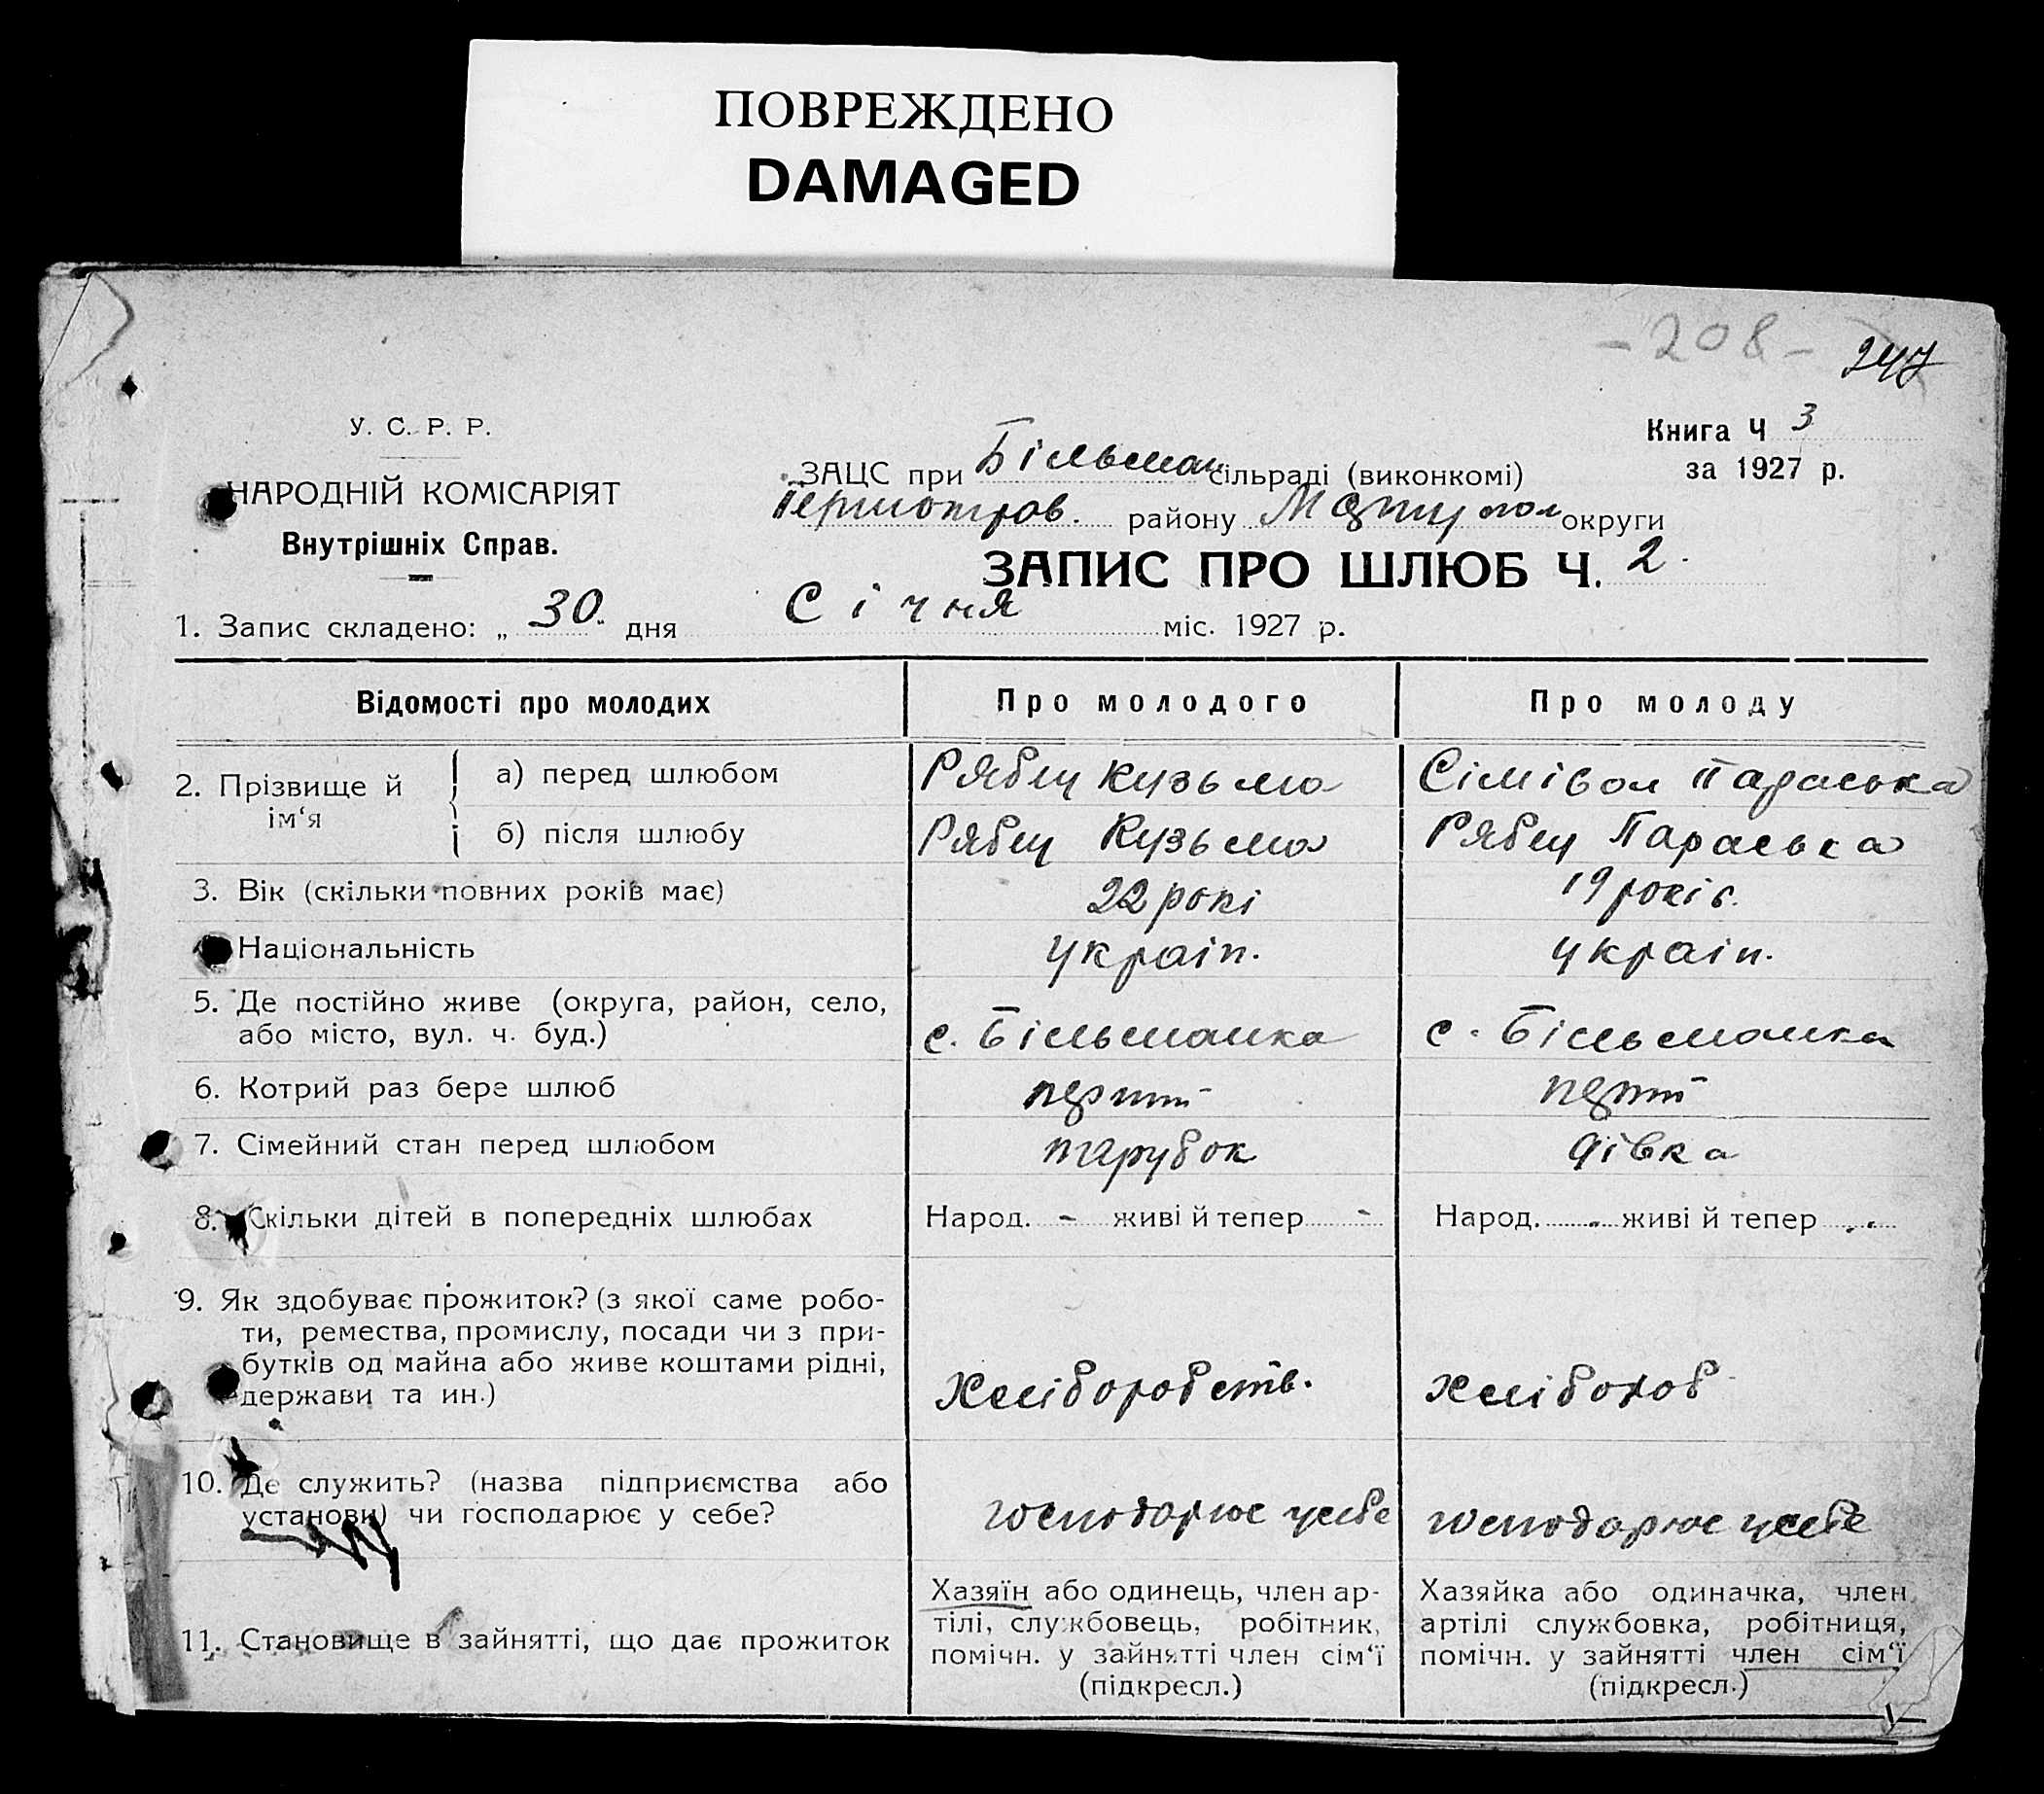 ПОВРЕЖДЕНО
DAMAGED
- 208 -
247
У. С. Р. Р.
НАРОДНІЙ КОМІСАРІЯТ
Внутрішніх Справ.
Книга Ч 3
за 1927 р.
ЗАЦС при Більман сільраді (виконкомі)
району Маріупол округи
ЗАПИС ПРО ШЛЮБ Ч. 2
1. Запис складено: „ 30 " дня Січня міс. 1927 р.
Відомості про молодих Про молодого Про молоду
2. Прізвище й ім‘я
а) перед шлюбом Рябец Кузьма Сімівол Параська
б) після шлюбу Рябец Кузьма Рябец Параська
3. Вік (скільки повних років має) 22 рокі 19 років.
Національність україн. україн.
5. Де постійно живе (округа, район, село,
або місто, вул. ч. буд.) с. Більманка с. Більманка
6. Котрий раз бере шлюб
7. Сімейний стан перед шлюбом парубок дівка
8. Скільки дітей в попередніх шлюбах Народ. - живі й тепер - Народ. - живі й тепер -
9. Як здобуває прожиток? (з якої саме робо-
ти, ремества, промислу, посади чи з при-
бутків од майна або живе коштами рідні,
держави та ин.) Хліборобств. хлібороб
10. Де служить? (назва підприємства або
установи) чи господарює у себе? господарює усебе господарює усебе
11. Становище в зайнятті, що дає прожиток
Хазяїн або одинець, член ар-
тілі, службовець, робітник,
помічн. у зайнятті член сім‘ї
(підкресл.)
Хазяйка або одиначка, член
артілі службовка, робітниця,
помічн. у зайнятті член сім‘ї
(підкресл.)